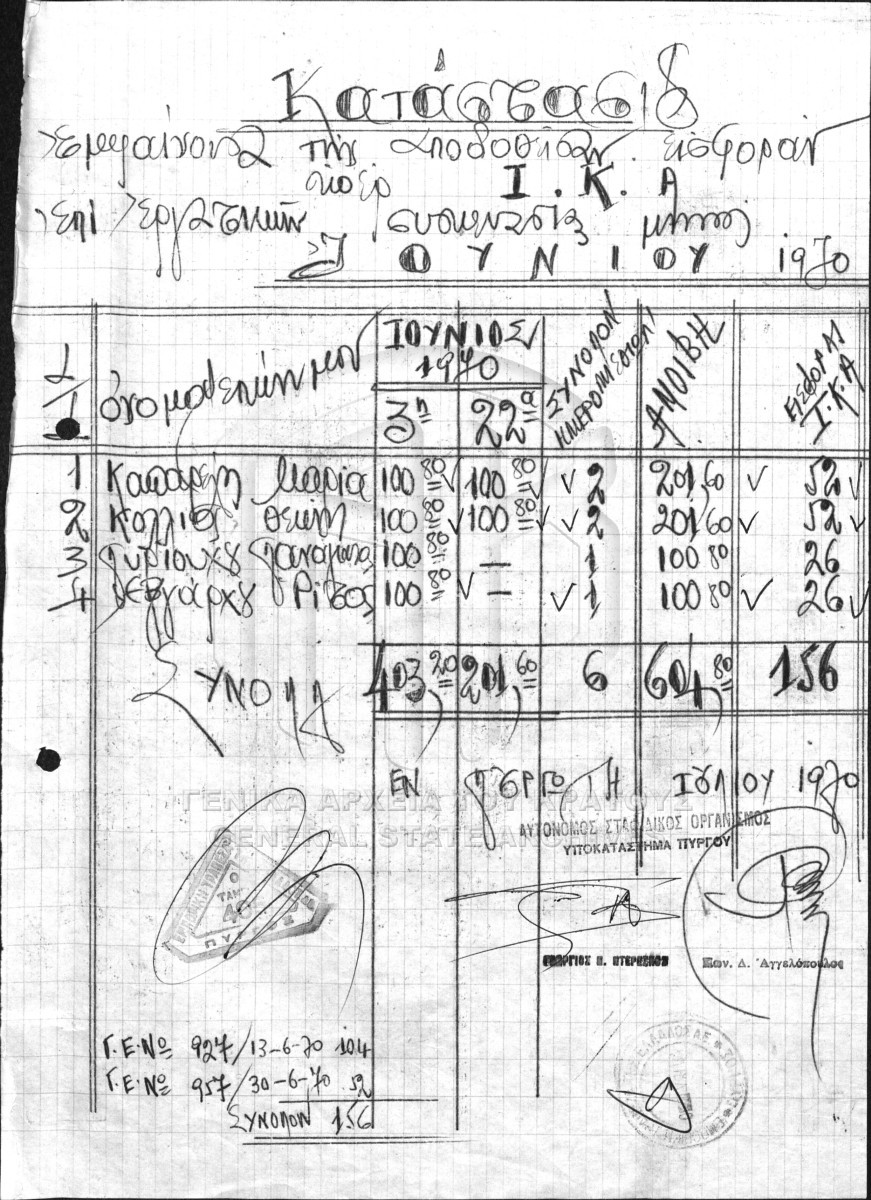 Κατάστασις
εμφαίνουσα την αποδοθείσαν εισφοράν
υπέρ Ι.Κ.Α
επί εργατικών συσκευασίας μηνός
ΙΟΥΝΙΟΥ 1970
Α/Α ονοματεπώνυμον ΙΟΥΝΙΟΣ 1970 3η 22α ΣΥΝΟΛΟΝ ΗΜΕΡΟΜΙΣΘΙΩΝ ΑΜΟΙΒΗ ΕΙΣΦΟΡΑΙ Ι.Κ.Α
1 Μαρία 100 80 100 80 2 201,60 52
2 Κόλλια 100 80 100 80 2 201,60 52
3 100 80 — 1 100 80 26
4 100 80 — 1 100 80 26
ΣΥΝΟΛΑ 403,20 201,60 6 604,80 156
ΕΝ ΠΥΡΓΩ ΤΗ ΙΟΥΛΙΟΥ 1970
ΓΕΝΙΚΑ ΑΡΧΕΙΑ ΤΟΥ ΚΡΑΤΟΥΣ
GENERAL STATE ARCHIVES
ΑΥΤΟΝΟΜΟΣ ΣΤΑΦΙΔΙΚΟΣ ΟΡΓΑΝΙΣΜΟΣ
ΥΠΟΚΑΤΑΣΤΗΜΑ ΠΥΡΓΟΥ
ΓΕΩΡΓΙΟΣ Κων. Δ. Αγγελόπουλος
Γ.Ε.Νο 927/13-6-70 104
Γ.Ε.Νο 957/30-6-70 52
ΣΥΝΟΛΟΝ 156